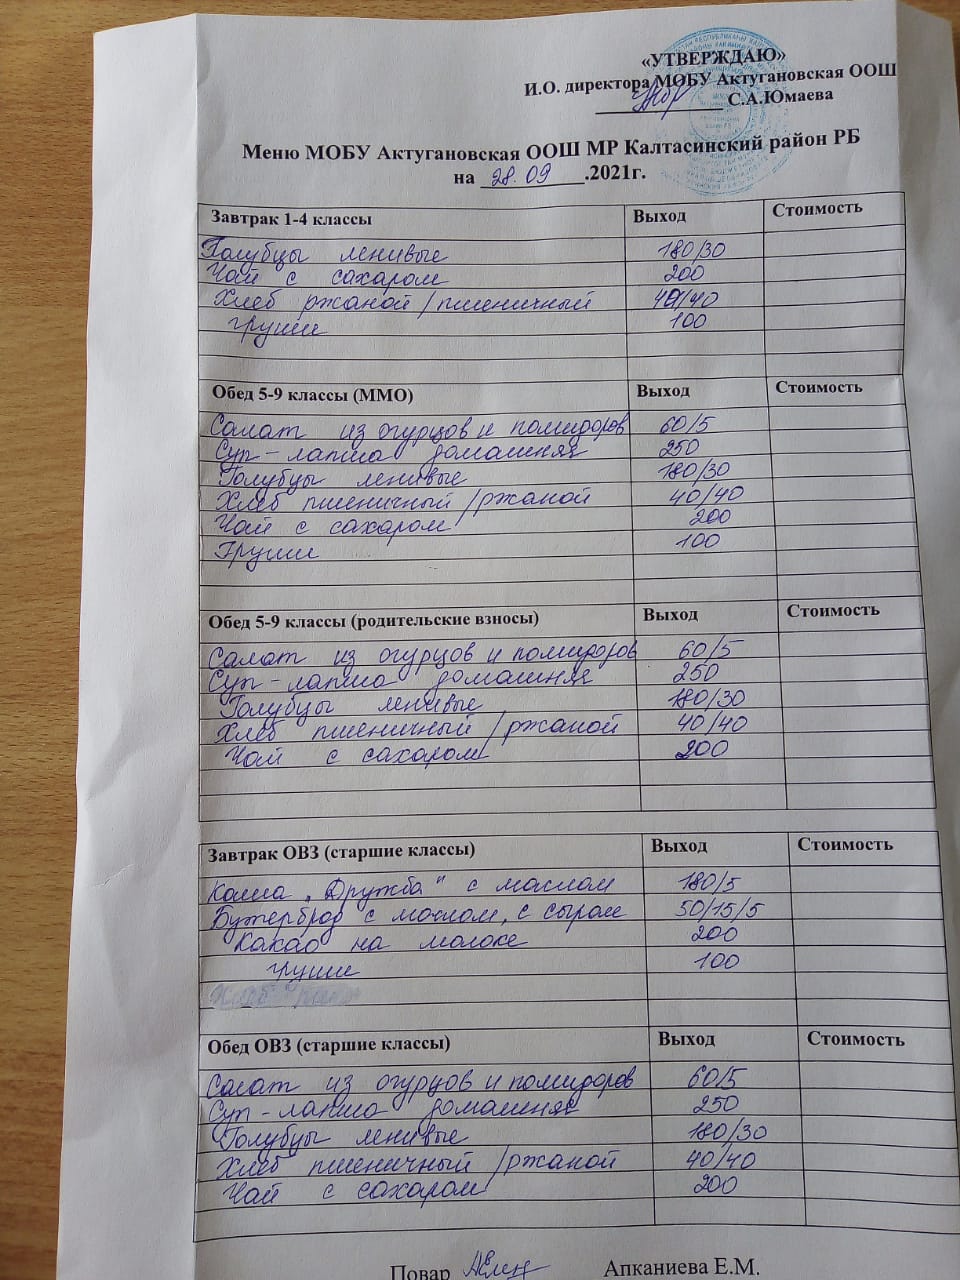 «УТВЕРЖДАЮ»
И.О. директора МОБУ Актугановская ООШ
С.А.Юмаева
Меню МОБУ Актугановская ООШ МР Калтасинский район РБ
на 28.09.2021г.
Завтрак 1-4 классы Выход Стоимость
Голубцы ленивые 180/30
Чай с сахаром 200
Хлеб ржаной/пшеничный 40/40
груши 100
Обед 5-9 классы (ММО) Выход Стоимость
Салат из огурцов и помидоров 60/5
Суп-лапша домашняя 250
Голубцы ленивые 180/30
Хлеб пшеничный/ржаной 40/40
Чай с сахаром 200
Груши 100
Обед 5-9 классы (родительские взносы) Выход Стоимость
Салат из огурцов и помидоров 60/5
Суп-лапша домашняя 250
Голубцы ленивые 180/30
Хлеб пшеничный/ржаной 40/40
Чай с сахаром 200
Завтрак ОВЗ (старшие классы) Выход Стоимость
Каша „Дружба" с маслом 180/5
Бутерброд с маслом, с сыром 50/15/5
Какао на молоке 200
груши 100
Обед ОВЗ (старшие классы) Выход Стоимость
Салат из огурцов и помидоров 60/5
Суп-лапша домашняя 250
Голубцы ленивые 180/30
Хлеб пшеничный/ржаной 40/40
Чай с сахаром 200
Повар Апканиева Е.М.